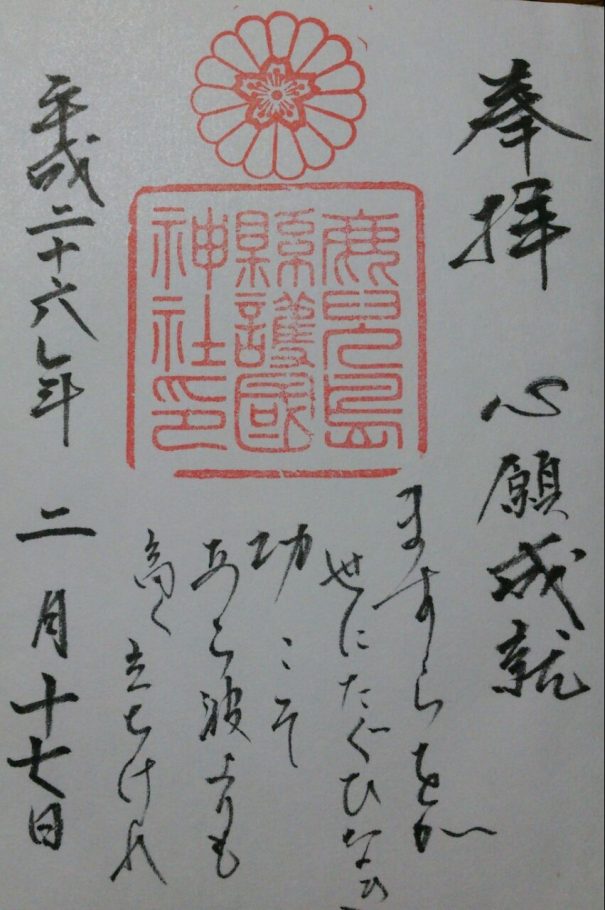 奉拝 心願成就
鹿児島
縣護國
神社印
ますらをが
世にたぐひなき
功こそ
あら波よりも
高く立ちけれ
平成二十六年 二月十七日